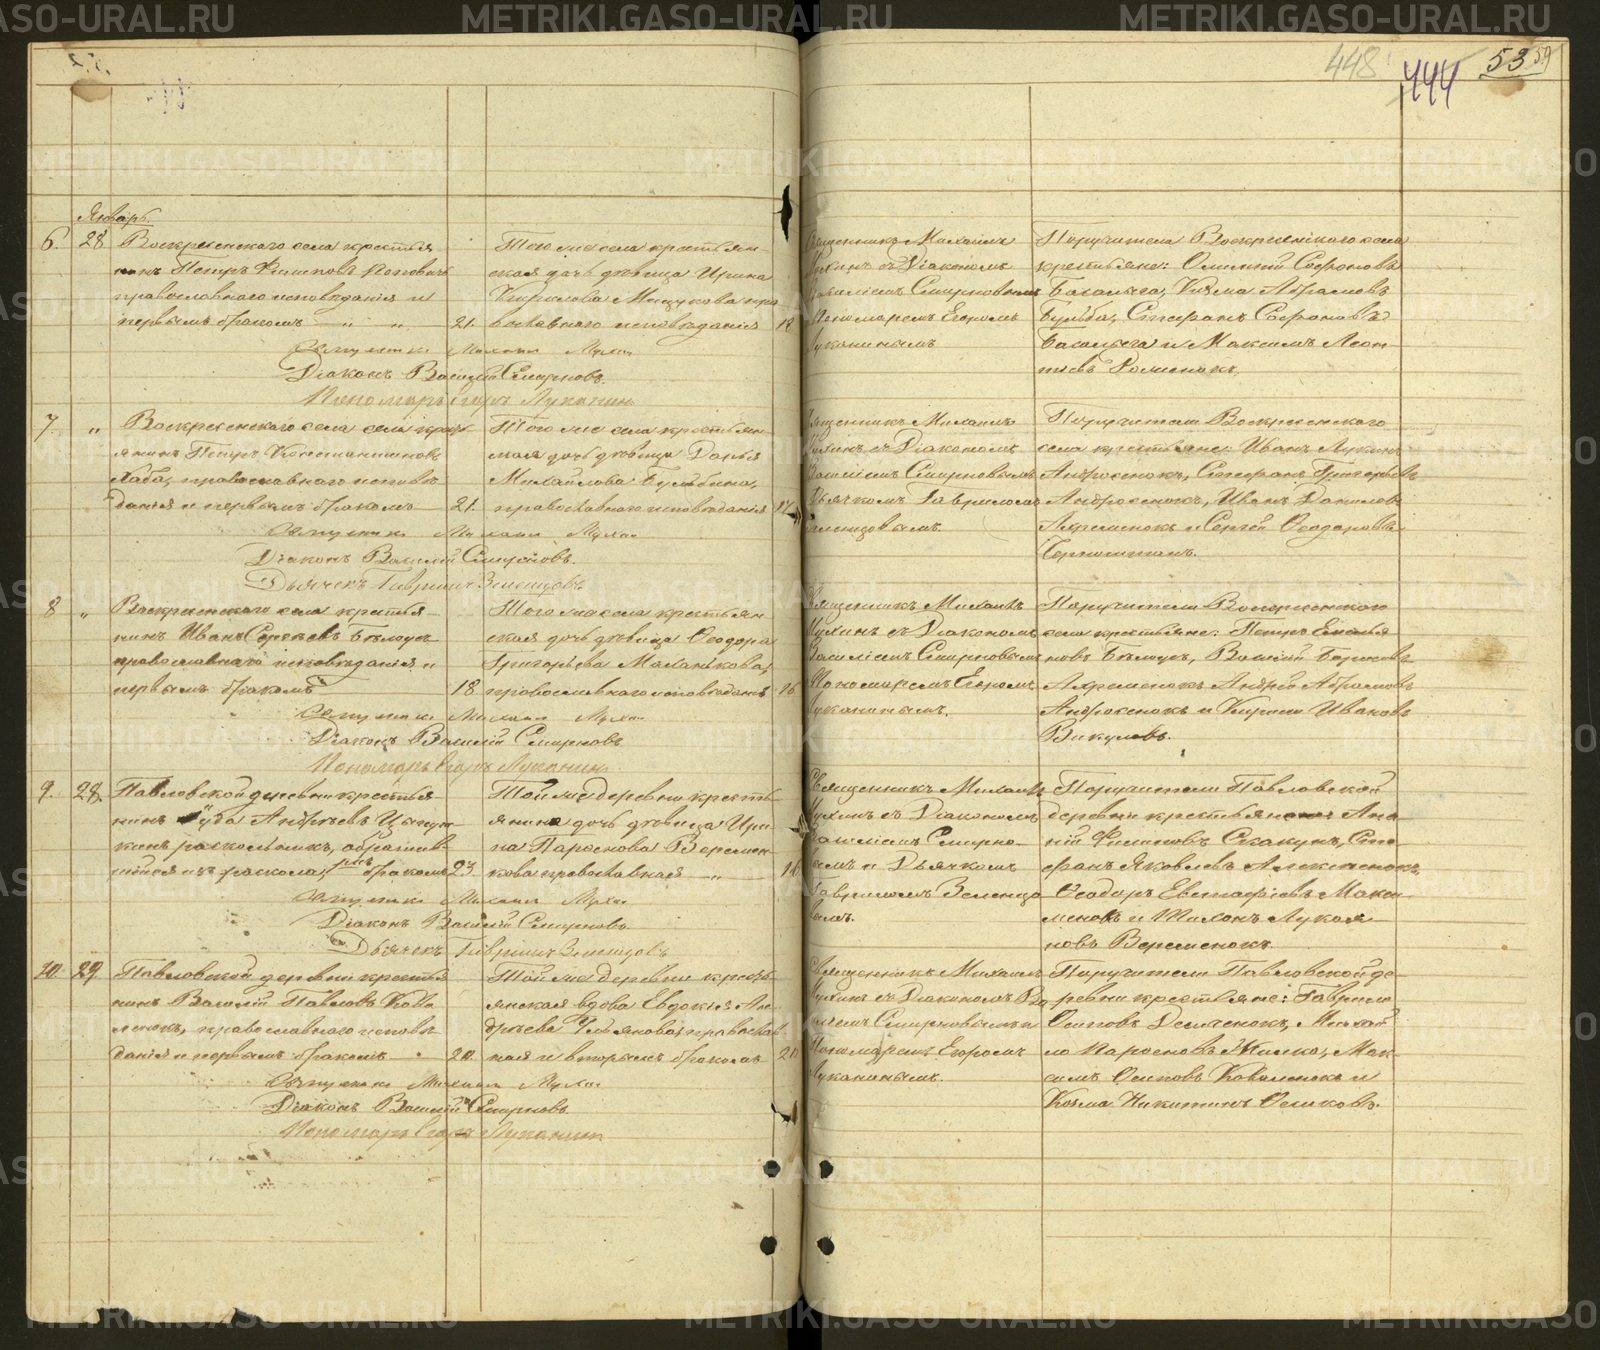 448 444 53 59
Январь.
6. 28 Воскресенскаго села крестья
нинъ Петръ Филиповъ Попович
православнаго исповѣданія и
первымъ бракомъ — „ „ 21.
Того же села крестьян-
ская дочь дѣвица Ирина
Кирилова Мацукова пра
вославнаго исповѣданія 18
Священникъ Михаилъ
Мухинъ съ Діакономъ
Василіемъ Смирновымъ
Пономаремъ Егоромъ
Луканинымъ
Поручители Воскресенскаго села
крестьяне: Софоновъ
Козма Абрамовъ
Бульба, Стефанъ Софоновъ
и Максимъ Леон
тьевъ
Священникъ Михаилъ Мухин
Діаконъ Василій Смирновъ.
Пономарь Егоръ Луканин
7. „ Воскресенскаго села села крест
янинъ Петръ Константиновъ
Хаба, православнаго исповѣ
данія и первымъ бракомъ 21.
Того же села крестьян
ская дочь дѣвица Дарья
Михайлова Бульбина,
православнаго исповѣданія 17
Священникъ Михаилъ
Мухинъ съ Діакономъ
Василіемъ Смирновымъ
Дьячкомъ Гавриломъ
Зеленцовымъ.
Поручители Воскресенскаго
села крестьяне: Иванъ Лукинъ
Андросенокъ, Стефанъ Григорьевъ
Андросенокъ, Иванъ Даниловъ
Ахременокъ и Сергѣй Ѳеодоровъ
Священникъ Михаилъ Мухин
Діаконъ Василій Смирновъ.
Дьячекъ Гавріилъ Зеленцовъ
8 „ Воскресенскаго села крестья
нинъ Иванъ Сергѣевъ Бѣлоусъ
православнаго исповѣданія и
первымъ бракомъ 18
Того же села крестьян
ская дочь дѣвица Ѳеодора
Григорьева Маланькова,
православнаго исповѣданія 16
Священникъ Михаилъ
Мухинъ съ Діакономъ
Василіемъ Смирновымъ
Пономаремъ Егоромъ
Луканинымъ.
Поручители Воскресенскаго
села крестьяне: Петръ Емелья
новъ Бѣлоусъ, Василій Борисовъ
Ахременокъ Андрей Абрамовъ
Андросенокъ и Кирилъ Ивановъ
Викуловъ.
Священникъ Михаилъ Мухин
Діаконъ Василій Смирновъ
Пономарь Егоръ Луканин.
9. 28. Павловской деревни крестья
нинъ Андреевъ
раскольникъ, обратив
шійся изъ раскола, бракомъ 23
Той же деревни кресть
янина дочь дѣвица Ири
на Парфенова Веремен
кова православная „ 16
Священникъ Михаилъ
Мухинъ съ Діакономъ
Василіемъ Смирно-
вымъ и Дьячкомъ
Гавриломъ Зеленцо
вымъ.
Поручители Павловской
деревни крестьяне: Ана
ній Филиповъ Скакунъ, Сте
фанъ Яковлевъ Алексѣенокъ
Ѳеодоръ Евстафіевъ Макси
менокъ и Тихонъ Лукоя
новъ Веременокъ.
Священникъ Михаилъ Мухин
Діаконъ Василій Смирновъ.
Дьячекъ Гавріилъ Зеленцовъ
10. 29 Павловской деревни крестья
нинъ Василій Павловъ Кова
ленокъ, православнаго исповѣ
данія и первымъ бракомъ 20.
Той же деревни кресть-
янская вдова Евдокія Ан
дреева Ульянова, православ
ная и вторымъ бракомъ 20
Священникъ Михаилъ
Мухинъ съ Діакономъ Ва
силіемъ Смирновымъ и
Пономаремъ Егоромъ
Луканинымъ.
Поручители Павловской де-
ревни крестьяне: Гаврило
Осиповъ Демченокъ, Михай
ло Парфеновъ Жилко, Мак-
симъ Осиповъ Коваленокъ и
Козма Никитинъ Осиковъ.
Священникъ Михаилъ Мухин
Діаконъ Василій Смирновъ
Пономарь Егоръ Луканин